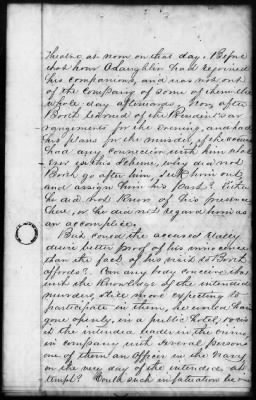 theatre at noon on that day. Before
that hour O'Laughlin had rejoined
his companions, and was not out
of the company of some of them the
whole day afterwards. Now, after
Booth learned of the President's ar
rangements for the evening, and had
his plans for the murder, if the accused
had any connection with him
ever in this scheme, why did not
Booth go after him, seek him out,
and assign him his part? Either
he did not know of his presence
here, or he did not regard him as
an accomplice.
But could the accused really
desire better proof of his innocence
than the fact of his visit to Booth
affords? Can any body conceive that
with the knowledge of the intended
murders, still more expecting to
participate in them, he could have
gone openly, in a public hotel, to vis
it the intended leader in the crime,
in company with several persons
one of them an officer in the Navy
on the very day of the intended at
tempt? Could such infatuation be